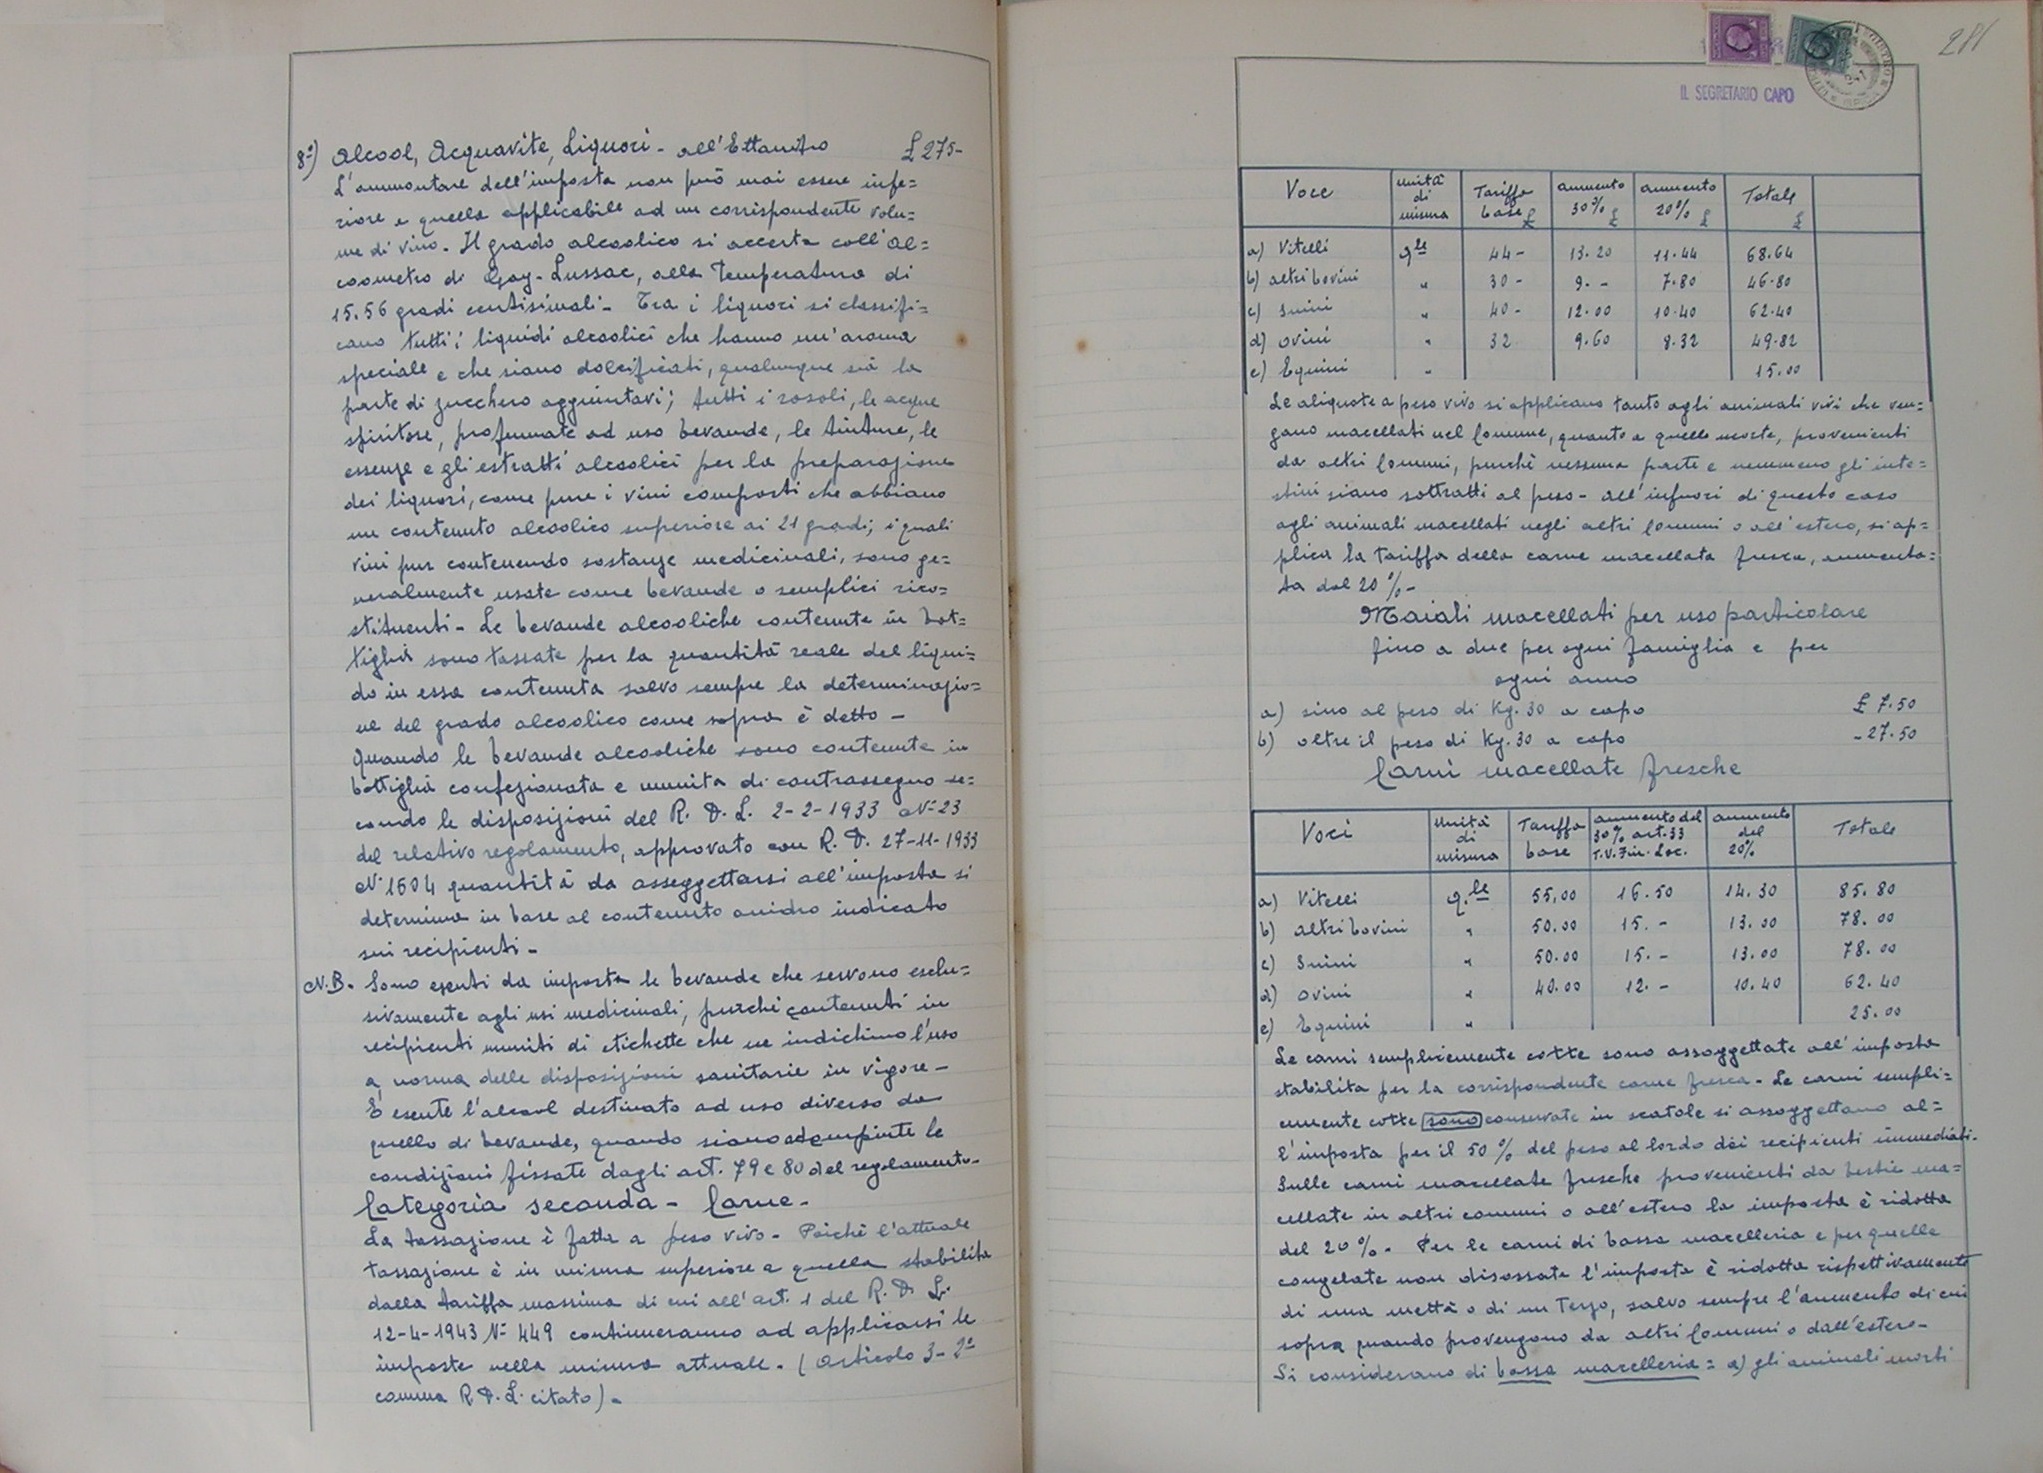 8°) Alcool, Acquavite, Liquori - all'Ettanitro £ 275-
L'ammontare dell'imposta non può mai essere infe=
riore a quella applicabile ad un corrispondente volu=
me di vino. Il grado alcoolico si accerta coll'al=
coometro di Gay-Lussac, alla temperatura di
15.56 gradi centisimali - Tra i liquori si classifi=
cano tutti i liquidi alcoolici che hanno un'aroma
speciale e che siano dolcificati, qualunque sia la
parte di zucchero aggiuntavi; tutti i rosoli, le acque
spiritose, profumate ad uso bevande, le tinture, le
essenze e gli estratti alcoolici per la preparazione
dei liquori, come pure i vini composti che abbiano
un contenuto alcoolico superiore ai 21 gradi; i quali
vini pur contenendo sostanze medicinali, sono ge=
neralmente usate come bevande o semplici rico=
stituenti - Le bevande alcooliche contenute in bot=
tiglia sono tassate per la quantità reale del liqui=
do in essa contenuta salvo sempre la determinazio=
ne del grado alcoolico come sopra è detto -
Quando le bevande alcooliche sono contenute in
bottiglia confezionata e munita di contrassegno se=
condo le disposizioni del R. D. L. 2-2-1933 N° 23
del relativo regolamento, approvato con R. D. 27-11-1933
N° 1604 quantità da asseggettarsi all'imposta si
determina in base al contenuto anidro indicato
sui recipienti -
N.B. - Sono esenti da imposta le bevande che servono esclu=
sivamente agli usi medicinali, purchè contenuti in
recipienti muniti di etichette che ne indichino l'uso
a norma delle disposizioni sanitarie in vigore -
È esente l'alcool destinato ad uso diverso da
quello di bevande, quando siano adempiute le
condizioni fissate dagli art. 79 e 80 del regolamento -
Categoria seconda - Carne -
La tassazione è fatta a peso vivo - Poichè l'attuale
tassazione è in misura superiore a quella stabilita
dalla tariffa massima di cui all'art. 1 del R. D. L.
12-4-1943 N° 449 continueranno ad applicarsi le
imposte nella misura attuale - (Articolo 3 - 2°
comma R. D. L. citato) -
281
IL SEGRETARIO CAPO
Voce | unità di misura | Tariffa base £ | aumento 30% £ | aumento 20% £ | Totale £
a) Vitelli | q.le | 44 - | 13.20 | 11.44 | 68.64
b) altri bovini | " | 30 - | 9. - | 7.80 | 46.80
c) Suini | " | 40 - | 12.00 | 10.40 | 62.40
d) ovini | " | 32 | 9.60 | 8.32 | 49.82
e) Equini | " | 15.00
Le aliquote a peso vivo si applicano tanto agli animali vivi che ven=
gano macellati nel Comune, quanto a quelle morte, provenienti
da altri Comuni, purchè nessuna parte e nemmeno gli inte=
stini siano sottratti al peso - all'infuori di questo caso
agli animali macellati negli altri Comuni o all'estero, si ap=
plica la tariffa della carne macellata fresca, aumenta=
ta dal 20% -
Maiali macellati per uso particolare
fino a due per ogni famiglia e per
ogni anno
a) sino al peso di Kg. 30 a capo £ 7.50
b) oltre il peso di Kg. 30 a capo - 27.50
Carni macellate fresche
Voci | Unità di misura | Tariffa base | aumento del 30% art. 33 T.U. Fin. Loc. | aumento del 20% | Totale
a) Vitelli | q.le | 55,00 | 16.50 | 14.30 | 85.80
b) altri bovini | " | 50.00 | 15. - | 13.00 | 78.00
c) Suini | " | 50.00 | 15. - | 13.00 | 78.00
d) ovini | " | 40.00 | 12. - | 10.40 | 62.40
e) Equini | " | 25.00
Le carni semplicemente cotte sono assoggettate all'imposta
stabilita per la corrispondente carne fresca - Le carni sempli=
cemente cotte sono conservate in scatole si assoggettano al=
l'imposta per il 50% del peso al lordo dei recipienti immediati.
Sulle carni macellate fresche provenienti da bestie ma=
cellate in altri comuni o all'estero la imposta è ridotta
del 20% - Per le carni di bassa macelleria e per quelle
congelate non disossate l'imposta è ridotta rispettivamente
di una mettà o di un terzo, salvo sempre l'aumento di cui
sopra quando provengono da altri Comuni o dall'estero -
Si considerano di bassa macelleria = a) gli animali morti